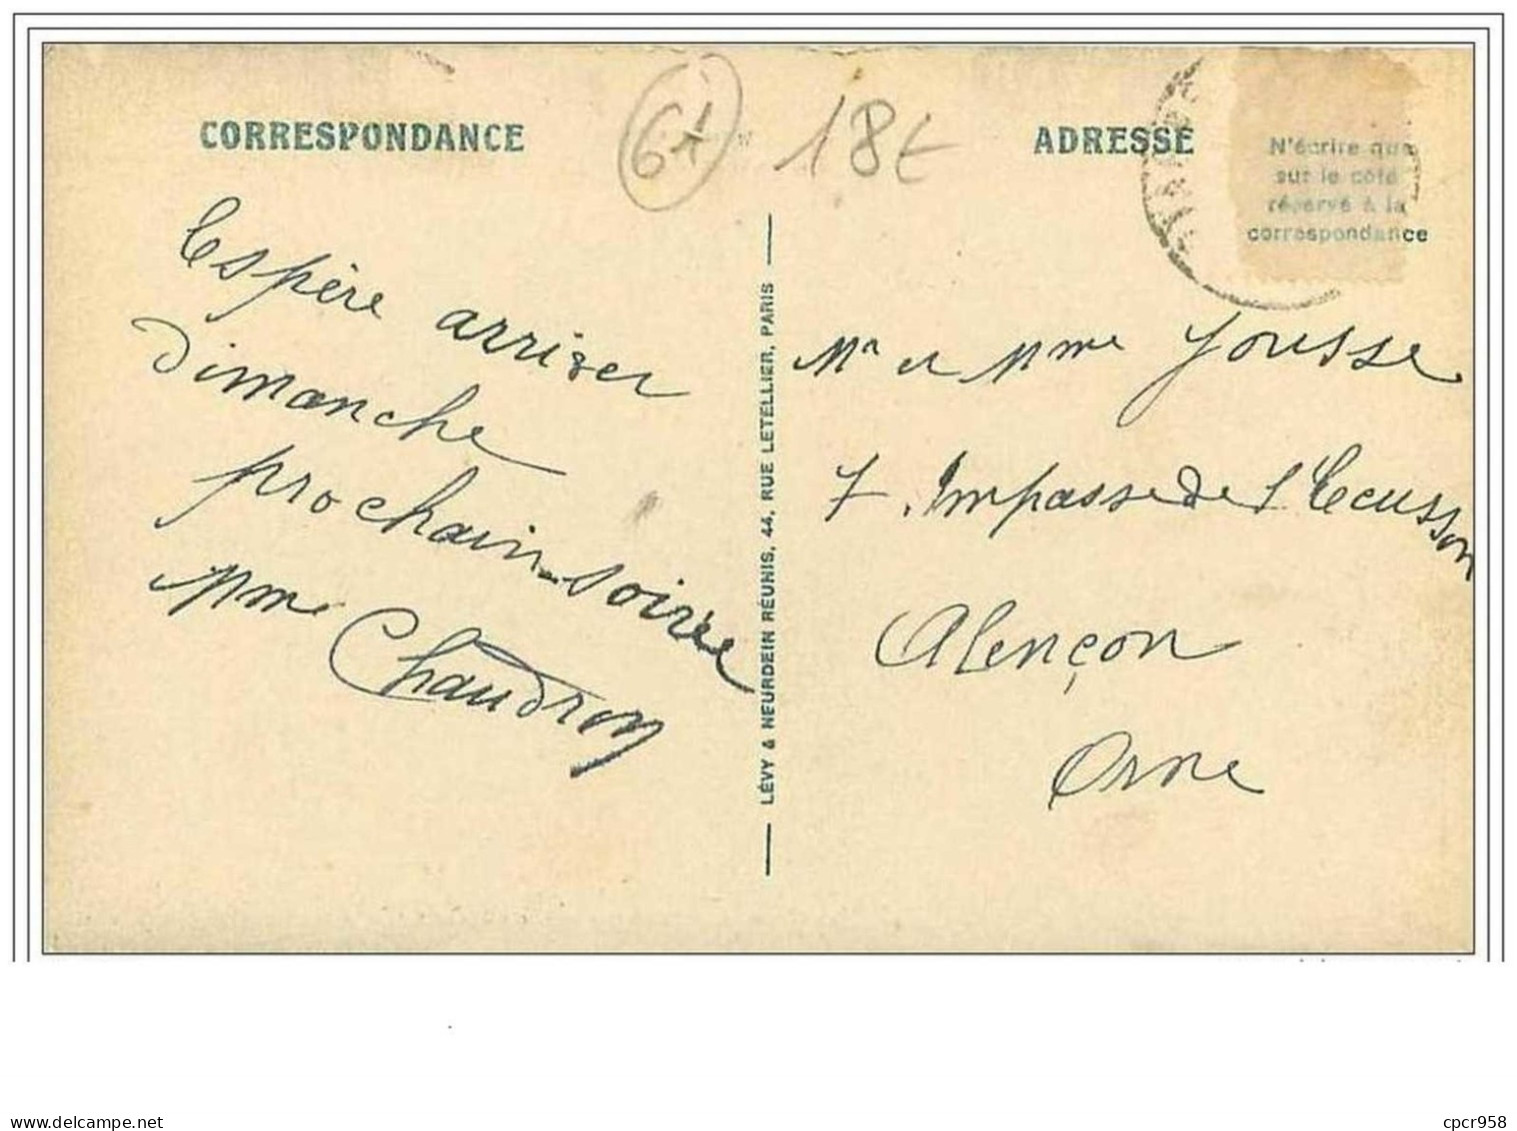 CORRESPONDANCE
61
18€
ADRESSE
N'écrire que
sur le côté
réservé à la
correspondance
Espère arriver
Dimanche
prochain soirée
Mme Chaudron
LÉVY & NEURDEIN RÉUNIS, 44, RUE LETELLIER, PARIS
Mr et Mme Jousse
7. Impasse de l'Ecusson
Alençon
Orne
https://www.delcampe.net
cpcr958